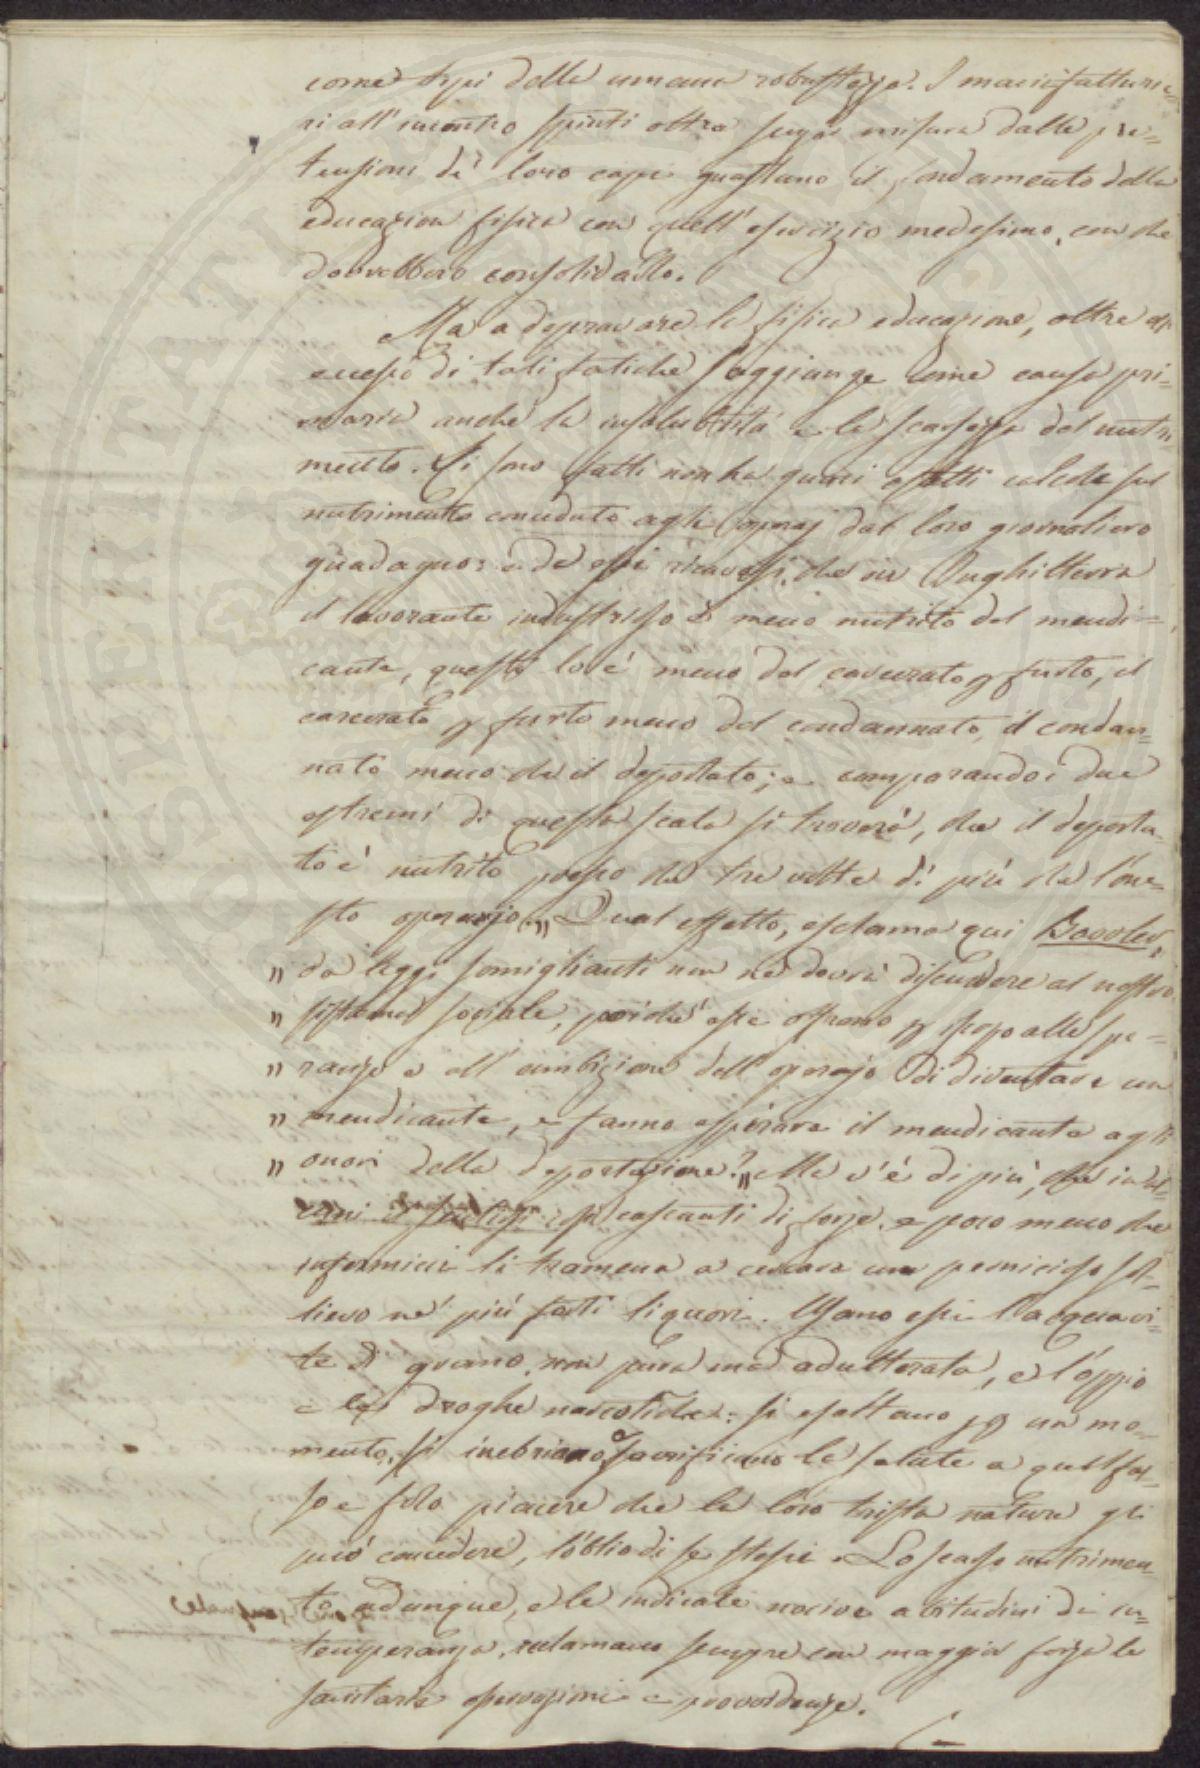 come tipi della umana robustezza. I manifatturie=
ri all'incontro spinti oltre ogni misura dalle pre=
tensioni de' loro capi guastano il fondamento della
educazion fisica con quell'esercizio medesimo, con che
dovrebbero consolidarlo.
Ma a depravare la fisica educazione, oltre all'
eccesso di tali fatiche s'aggiunge come causa pri=
maria anche la insalubrità e la scarsezza del nutri
mento. Si sono fatti non ha guari esatti calcoli sul
nutrimento conceduto agli operaj dal loro giornaliero
guadagno: e da essi ricavasi, che in Inghilterra
il lavorante industrioso è meno nutrito del mendi=
cante, questi lo è meno del carcerato p furto, il
carcerato p furto meno del condannato, il condan=
nato meno che il deportato; e comparando i due
estremi di questa scala si troverà, che il deporta=
to è nutrito presso che tre volte di più che l'one=
sto operajo. „Qual effetto, esclama qui
„ da leggi somiglianti non ne dovrà discendere al nostro
„ sistema sociale, poiché esse offrono p scopo alle spe=
„ ranze e all'ambizione dell'operajo di diventare un
„ mendicante, e fanno aspirare il mendicante agli
„ onori della deportazione?„ Ma v'è di più, che
essi cascanti di forze, e poco meno che
infermicci li tramena a cercare un pernicioso sol=
lievo ne' più forti liquori. Usano essi l'acquavi=
te di grano, non pura ma adulterata, e l'oppio
e le droghe narcotiche: si esaltano p un mo=
mento, si inebriano e sacrificano la salute a quel fal=
so e solo piacere che la loro trista natura gli
può concedere, l'oblio di se stessi. Lo scarso nutrimen=
to adunque, e le indicate nocive abitudini di in=
temperanza, reclamano sempre con maggior forza le
sanitarie osservazioni e provvidenze.